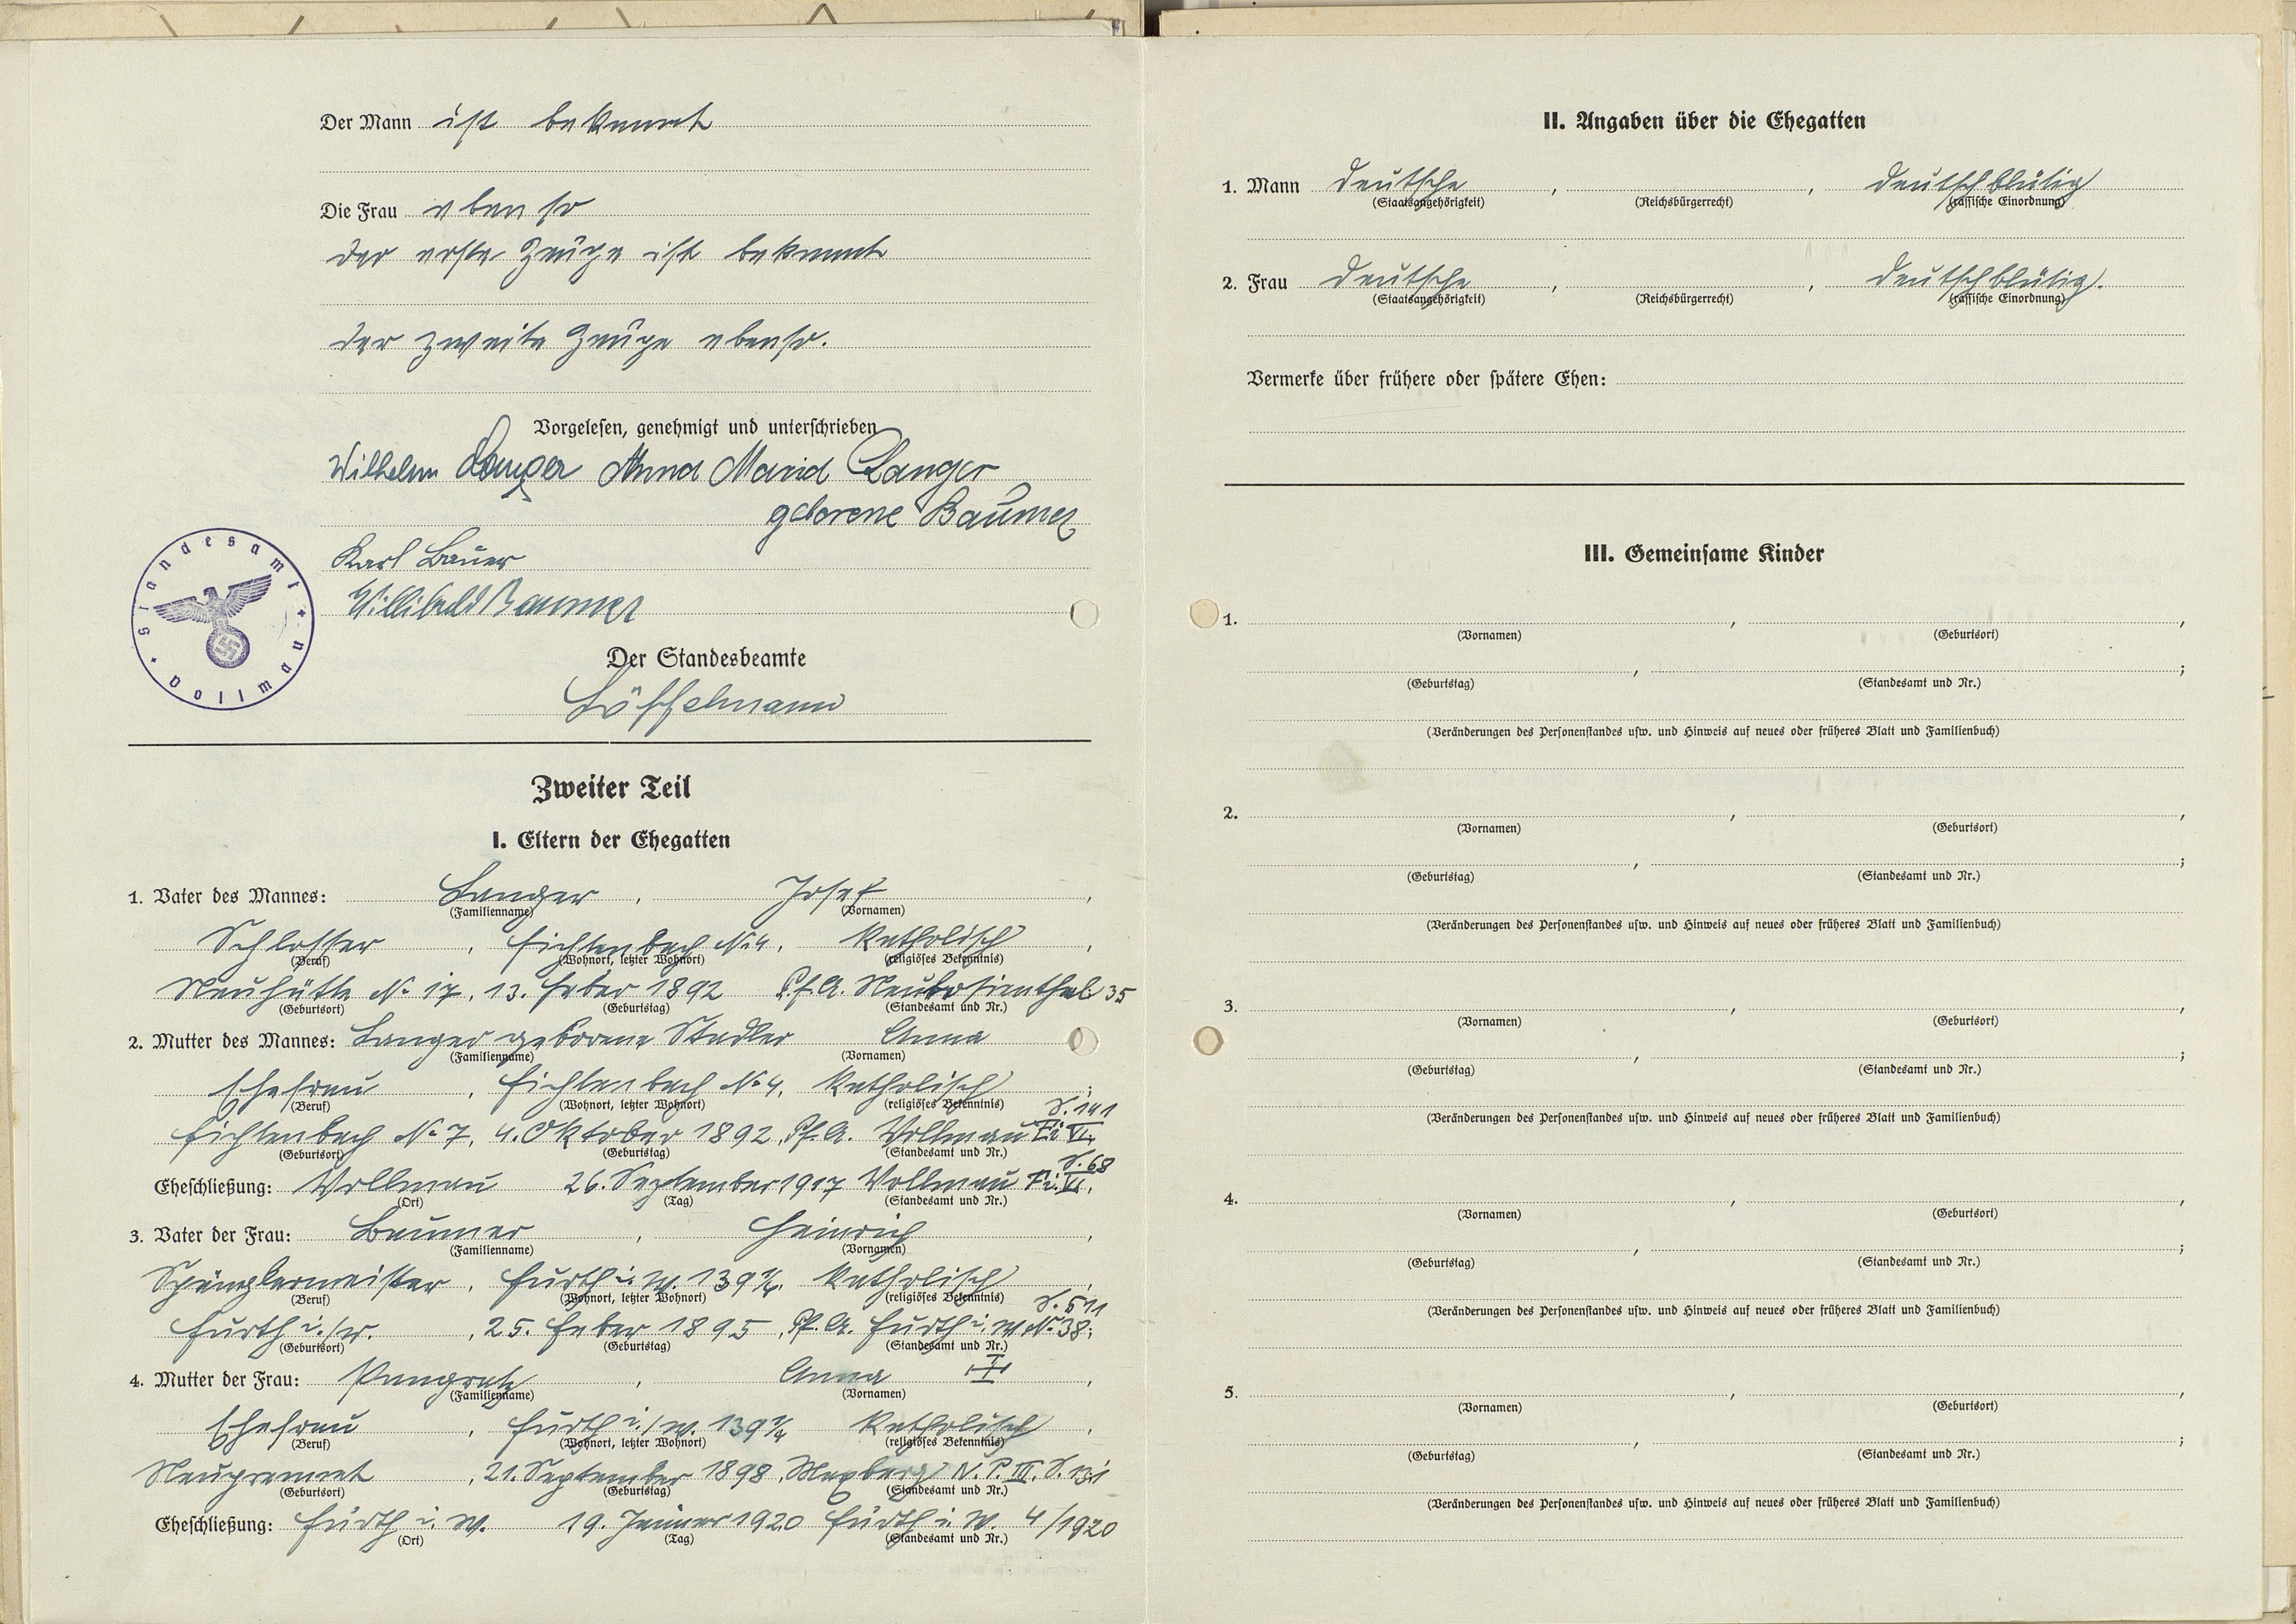 Der Mann ist bekannt
Die Frau ebenso
der erste Zeuge ist bekannt
der zweite Zeuge ebenso.
Vorgelesen, genehmigt und unterschrieben
Wilhelm Langer Anna Maria Langer
geborene Baumer
Karl Bauer
Willibald Baumer
Standesamt Vollmau
Der Standesbeamte
Löffelmann
Zweiter Teil
I. Eltern der Ehegatten
1. Vater des Mannes: Langer, Josef,
(Familienname) (Vornamen)
Schlosser, Fichtenbach No 4, katholisch,
(Beruf) (Wohnort, letzter Wohnort) (religiöses Bekenntnis)
Neuhütte No 17, 13. Feber 1892 Pf. A. 35
(Geburtsort) (Geburtstag) (Standesamt und Nr.)
2. Mutter des Mannes: Langer geborene Stadler Anna
(Familienname) (Vornamen)
Ehefrau, Fichtenbach No 4, katholisch;
(Beruf) (Wohnort, letzter Wohnort) (religiöses Bekenntnis)
S. 141
Fichtenbach No 7, 4. Oktober 1892, Pf. A. Vollmau Fi VI,
(Geburtsort) (Geburtstag) (Standesamt und Nr.)
S. 68
Eheschließung: Vollmau 26. September 1917 Vollmau Fi. VI,
(Ort) (Tag) (Standesamt und Nr.)
3. Vater der Frau: Baumer, Heinrich,
(Familienname) (Vornamen)
Spänglermeister, Furth i. W. 139 1/4, katholisch,
(Beruf) (Wohnort, letzter Wohnort) (religiöses Bekenntnis)
S. 511
Furth i./W., 25. Feber 1895, Pf. A. Furth i. W No 38;
(Geburtsort) (Geburtstag) (Standesamt und Nr.)
4. Mutter der Frau: Pangratz, Anna,
(Familienname) (Vornamen)
Ehefrau, Furth i./W. 139 1/4 katholisch,
(Beruf) (Wohnort, letzter Wohnort) (religiöses Bekenntnis)
Neugramat, 21. September 1898, Maxberg N. P. III. S. 131
(Geburtsort) (Geburtstag) (Standesamt und Nr.)
Eheschließung: Furth i. W. 19. Jänner 1920 Furth i. W. 4/1920
(Ort) (Tag) (Standesamt und Nr.)
II. Angaben über die Ehegatten
1. Mann deutsche, , deutschblütig
(Staatsangehörigkeit) (Reichsbürgerrecht) (rassische Einordnung)
2. Frau deutsche, , deutschblütig.
(Staatsangehörigkeit) (Reichsbürgerrecht) (rassische Einordnung)
Vermerke über frühere oder spätere Ehen:
III. Gemeinsame Kinder
1. , ,
(Vornamen) (Geburtsort)
, ;
(Geburtstag) (Standesamt und Nr.)
(Veränderungen des Personenstandes usw. und Hinweis auf neues oder früheres Blatt und Familienbuch)
2. , ,
(Vornamen) (Geburtsort)
, ;
(Geburtstag) (Standesamt und Nr.)
(Veränderungen des Personenstandes usw. und Hinweis auf neues oder früheres Blatt und Familienbuch)
3. , ,
(Vornamen) (Geburtsort)
, ;
(Geburtstag) (Standesamt und Nr.)
(Veränderungen des Personenstandes usw. und Hinweis auf neues oder früheres Blatt und Familienbuch)
4. , ,
(Vornamen) (Geburtsort)
, ;
(Geburtstag) (Standesamt und Nr.)
(Veränderungen des Personenstandes usw. und Hinweis auf neues oder früheres Blatt und Familienbuch)
5. , ,
(Vornamen) (Geburtsort)
, ;
(Geburtstag) (Standesamt und Nr.)
(Veränderungen des Personenstandes usw. und Hinweis auf neues oder früheres Blatt und Familienbuch)